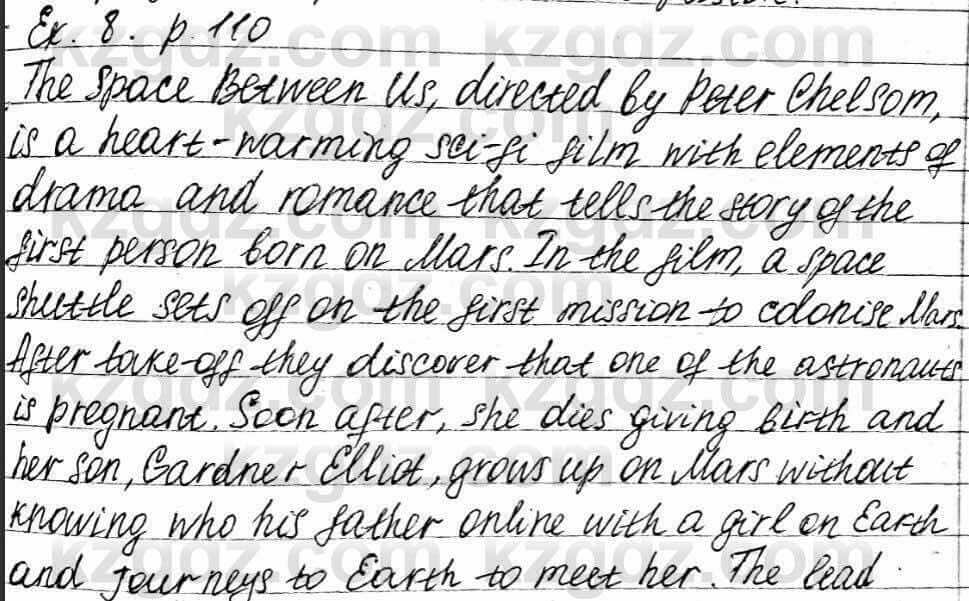 Ex. 8. p. 110
The Space Between Us, directed by Peter Chelsom,
is a heart-warming sci-fi film with elements of
drama and romance that tells the story of the
first person born on Mars. In the film, a space
shuttle sets off on the first mission to colonise Mars.
After take-off they discover that one of the astronauts
is pregnant. Soon after, she dies giving birth and
her son, Gardner Elliot, grows up on Mars without
knowing who his father online with a girl on Earth
and journeys to Earth to meet her. The lead